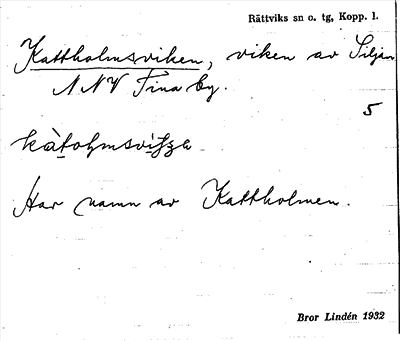 Rättviks sn o. tg, Kopp. l.
Kattholmsviken, viken av Siljan
NNV Tina by.
5
Har namn av Kattholmen.
Bror Lindén 1932